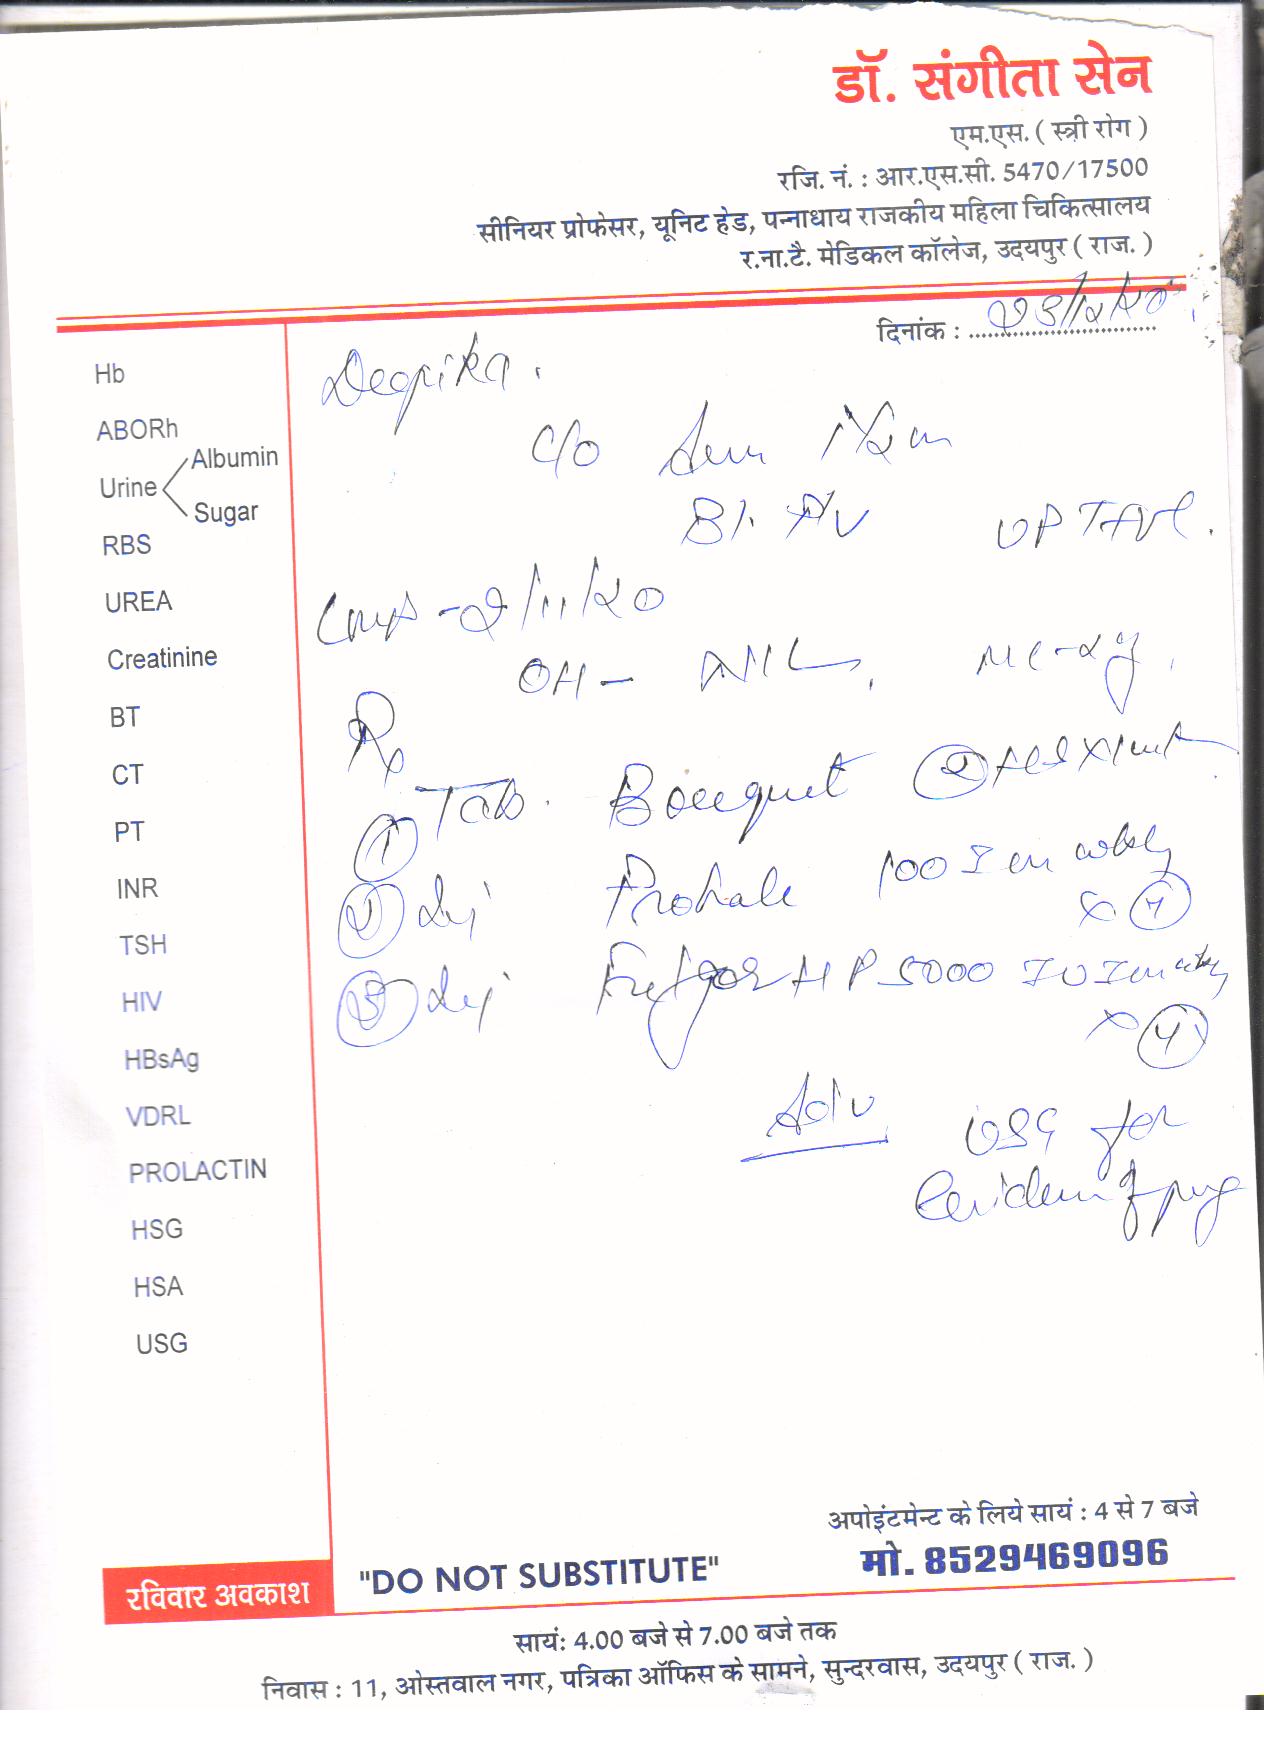 डॉ. संगीता सेन
एम.एस. ( स्त्री रोग )
रजि. नं. : आर.एस.सी. 5470/17500
सीनियर प्रोफेसर, यूनिट हेड, पन्नाधाय राजकीय महिला चिकित्सालय
र.ना.टै. मेडिकल कॉलेज, उदयपुर ( राज. )
दिनांक :
Hb
ABORh
Urine Albumin
Sugar
RBS
UREA
Creatinine
BT
CT
PT
INR
TSH
HIV
HBsAg
VDRL
PROLACTIN
HSG
HSA
USG
Deepika.
C/o
UPT
LMP - 2/11/20
OH - NIL,
Rx
① Tab. Bouquet
② Inj 100 IM
× ④
③ Inj HP 5000 IU IM
× ④
Adv USG for
रविवार अवकाश
"DO NOT SUBSTITUTE"
अपोइंटमेन्ट के लिये सायं : 4 से 7 बजे
मो. 8529469096
सायं: 4.00 बजे से 7.00 बजे तक
निवास : 11, ओस्तवाल नगर, पत्रिका ऑफिस के सामने, सुन्दरवास, उदयपुर ( राज. )